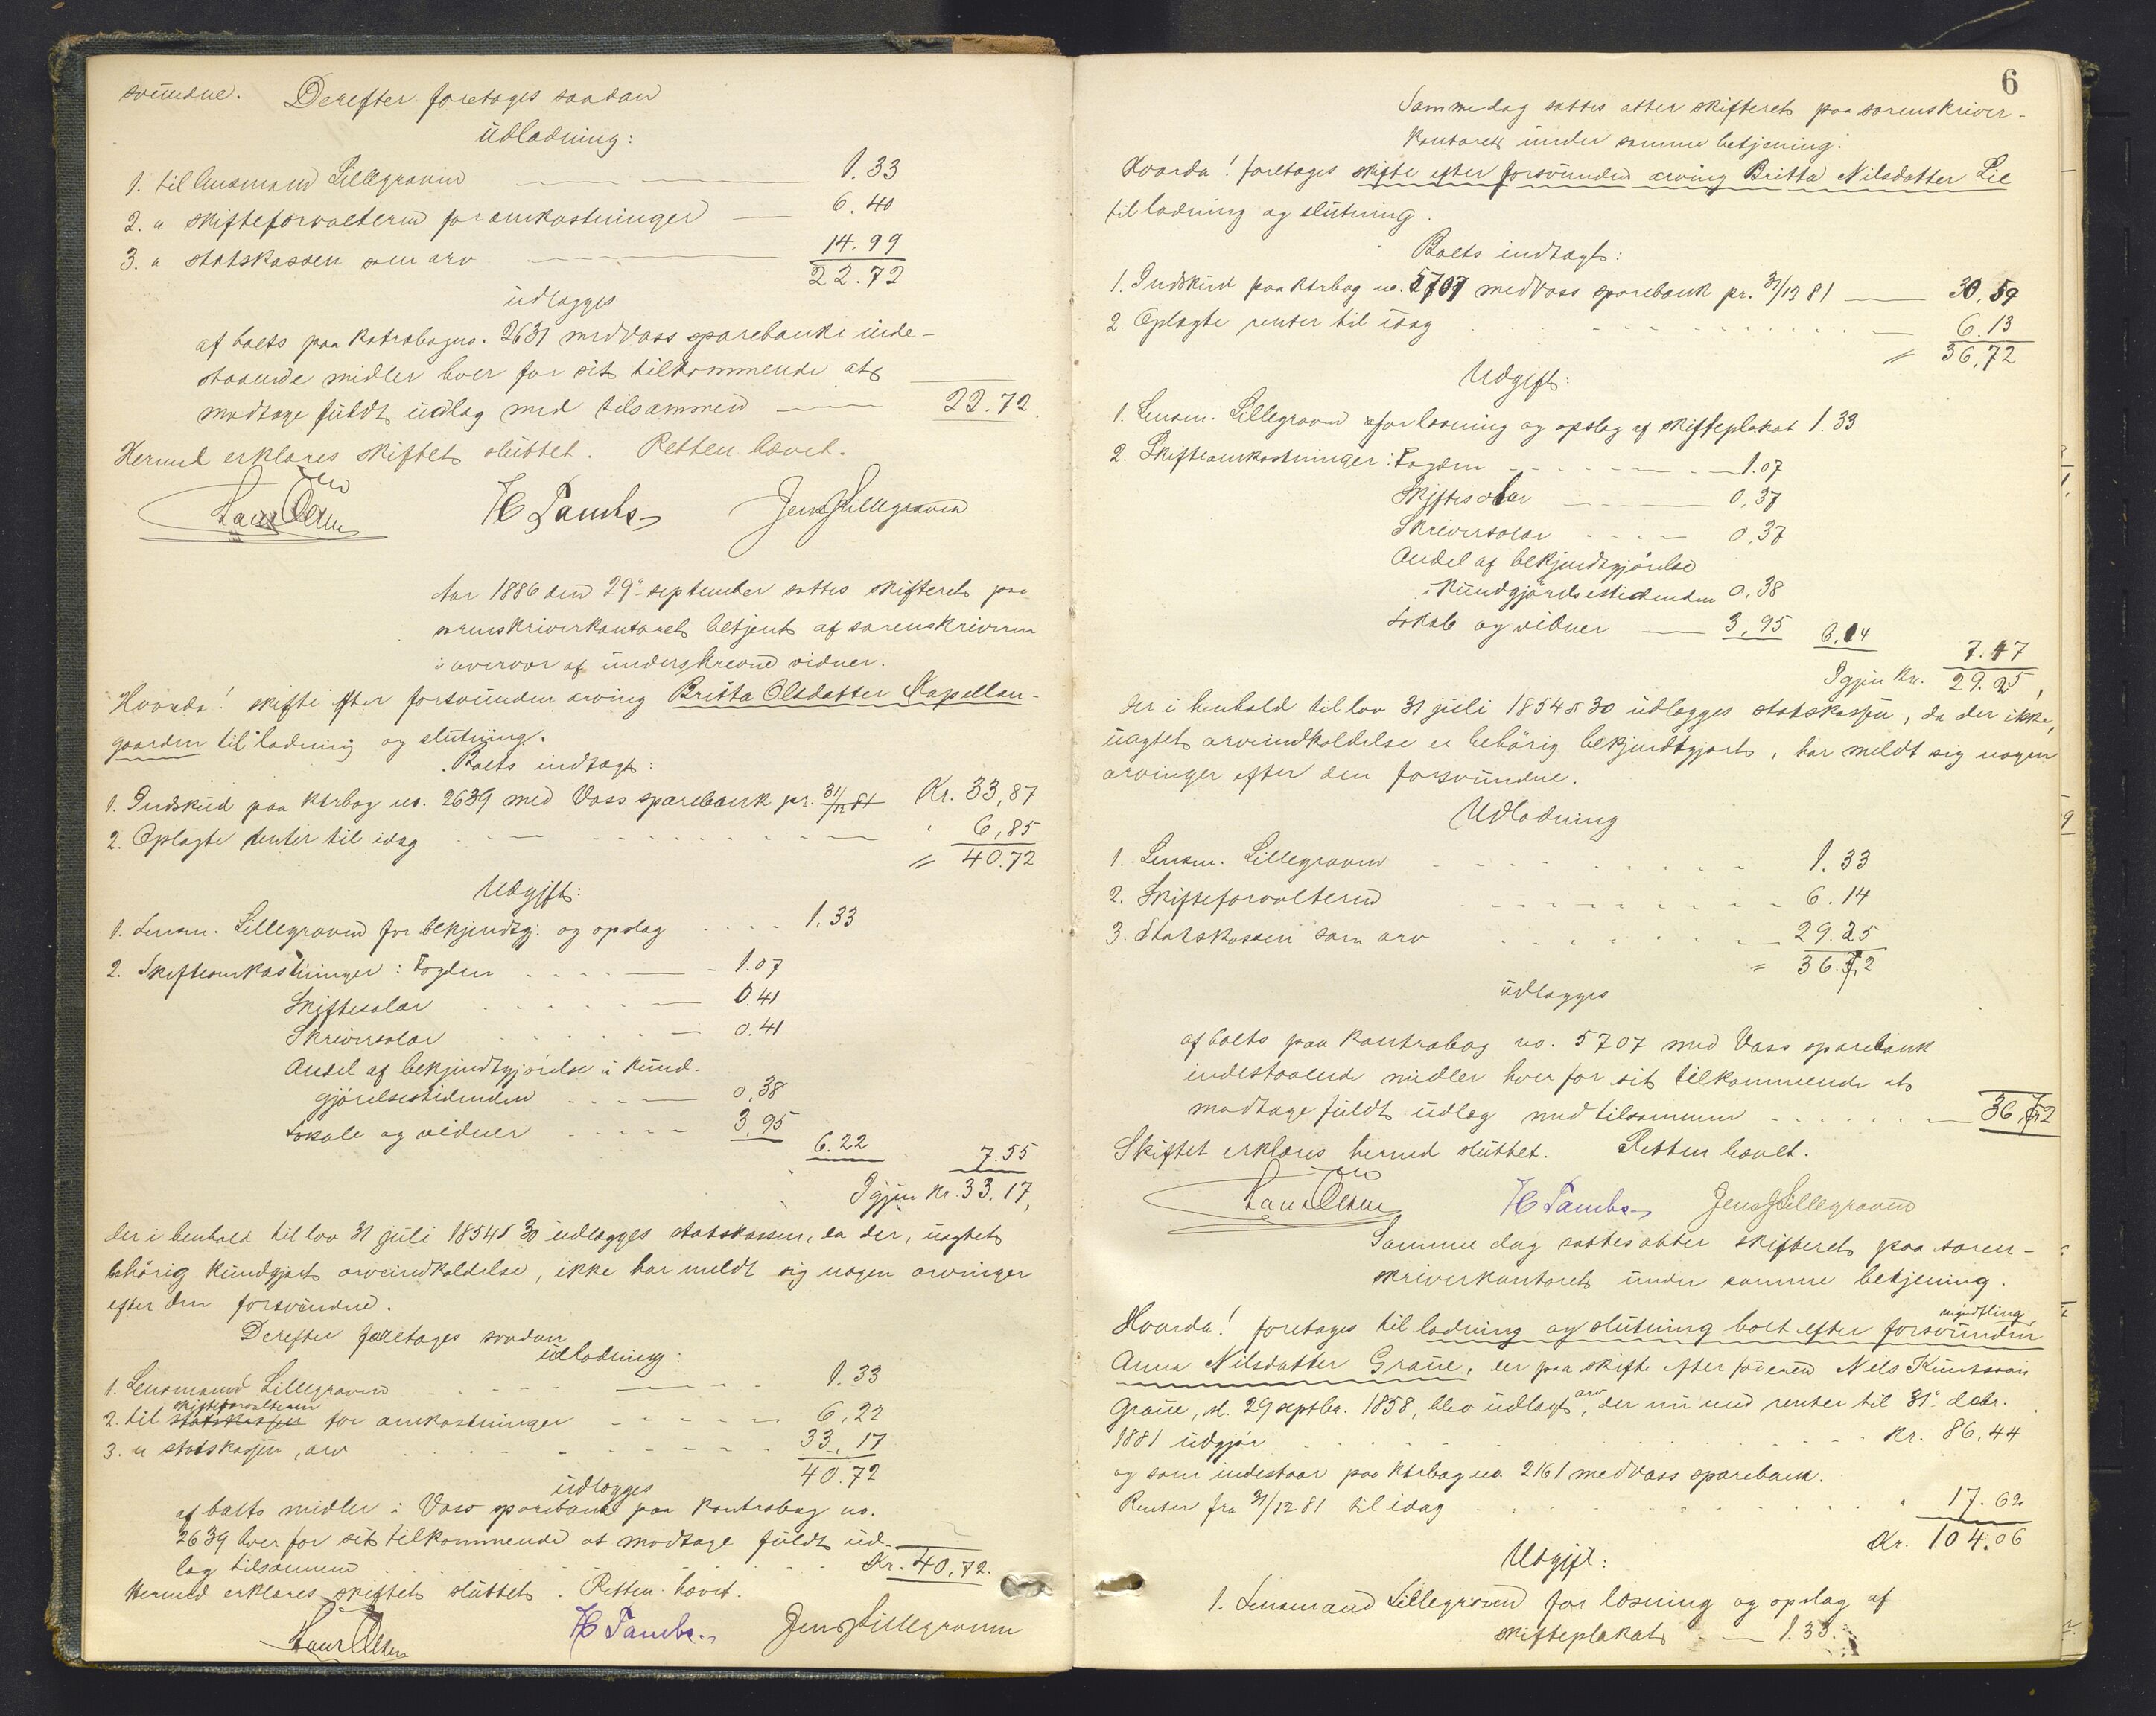 svundne. Derefter foretages saadan
udlodning:
1. til lensmand Lillegraven 1.33
2. " skifteforvalteren for omkostninger 6.40
3. " statskassen som arv 14.99
22.72
udlægges
af boets paa kontrabog no. 2631 med Voss sparebank inde-
staaende midler hver for sit tilkommende at
modtage fuldt udlag med tilsammen 22.72.
Hermed erklæres skiftet sluttet. Retten hævet.
Hans Olsen H Tambs Jens J Lillegraven
Aar 1886 den 29de september sattes skifteret paa
sorenskriverkontoret betjent af sorenskriveren
i overvær af underskrevne vidner.
Hvorda! skifte efter forsvunden arving Britta Olsdatter Kapellan-
gaarden til lodning og slutning.
Boets indtægt:
1. Indskud paa ktrbog no. 2639 med Voss sparebank pr. 31/12 81 Kr. 33,87
2. Oplagte renter til idag " 6,85
= 40.72
Udgift:
1. Lensm. Lillegraven for bekjendtg. og opslag 1.33
2. Skifteomkostninger: Fogden 1.07
Skiftesalær 0.41
Skriversalær 0.41
Andel af bekjendtgjørelse i Kund-
gjørelsestidenden 0,38
Lokale og vidner 3,95 6.22 7.55
Igjen Kr. 33.17,
der i henhold til lov 31 juli 1854 § 30 udlægges statskassen, da der, uagtet
behörig kundgjort arveindkaldelse, ikke har meldt sig nogen arvinger
efter den forsvundne.
Derefter foretages saadan
udlodning:
1. Lensmand Lillegraven 1.33
skifteforvalteren
2. til statskassen for omkostninger 6,22
3. " statskassen, arv 33,17
40.72
udlægges
af boets midler i Voss sparebank paa kontrabog no.
2639 hver for sit tilkommende at modtage fuldt ud-
lag tilsammen Kr. 40,72.
Hermed erklæres skiftet sluttet. Retten hævet.
Hans Olsen H Tambs Jens J Lillegraven
6
Samme dag sattes atter skifteret paa sorenskriver-
kontoret under samme betjening.
Hvorda! foretages skifte efter forsvunden arving Britta Nilsdatter Lie
til lodning og slutning.
Boets indtægt:
1. Indskud paa ktrbog no. 5707 med Voss sparebank pr. 31/12 81 30,59
2. Oplagte renter til idag 6.13
= 36,72
Udgift:
1. Lensm. Lillegraven for læsning og opslag af skifteplakat 1.33
2. Skifteomkostninger: Fogden 1.07
Skiftesalær 0,37
Skriversalær 0,37
Andel af bekjendtgjörelse
i Kundgjörelsestidenden 0,38
Lokale og vidner 3,95 6.14 7.47
Igjen Kr. 29.25,
der i henhold til lov 31 juli 1854 § 30 udlægges statskassen, da der ikke,
uagtet arveindkaldelse er behörig bekjendtgjort, har meldt sig nogen
arvinger efter den forsvundne.
Udlodning
1. Lensm. Lillegraven 1.33
2. Skifteforvalteren 6.14
3. Statskassen som arv 29.25
= 36.72
udlægges
af boets paa kontrabog no. 5707 med Voss sparebank
indestaaende midler hver for sit tilkommende at
modtage fuldt udlag med tilsammen 36,72
Skiftet erklæres hermed sluttet. Retten hævet.
Hans Olsen H Tambs Jens J Lillegraven
Samme dag sattes atter skifteret paa soren-
skriverkontoret under samme betjening.
myndtling
Hvorda! foretages til lodning og slutning boet efter forsvunden
Anna Nilsdatter Graue, der paa skifte efter faderen Nils Knutson
Graue, sl. 29 septbr. 1858, blev udlagt arv, der nu med renter til 31te debr.
1881 udgjör Kr. 86,44
og som indestaar paa ktrbog no. 2161 med Voss sparebank.
Renter fra 31/12 81 til idag " 17.62
Kr. 104.06
Udgift:
1. Lensmand Lillegraven for læsning og opslag af
skifteplakat 1.33.